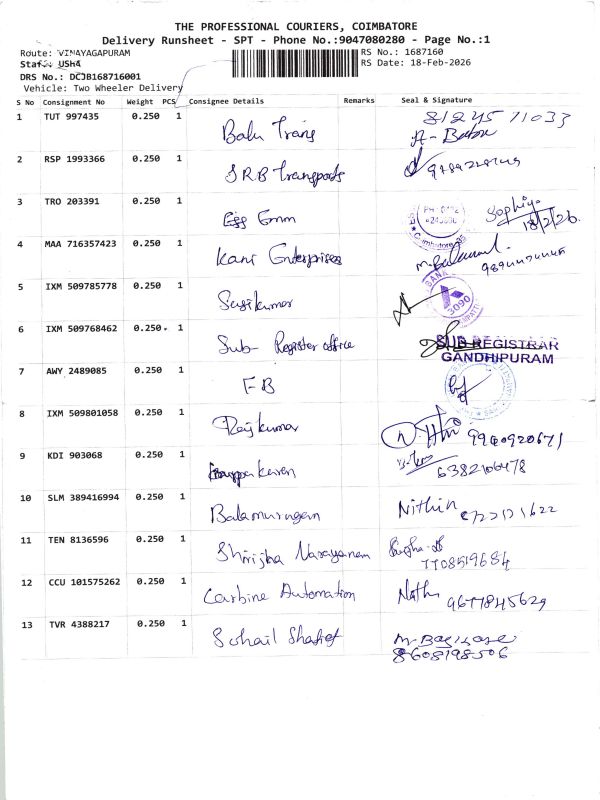 THE PROFESSIONAL COURIERS, COIMBATORE
Delivery Runsheet - SPT - Phone No.:9047080280 - Page No.:1
Route: VINAYAGAPURAM
RS No.: 1687160
Staff: USHA
RS Date: 18-Feb-2026
DRS No.: DCJB168716001
Vehicle: Two Wheeler Delivery
S No Consignment No Weight PCS Consignee Details Remarks Seal & Signature
1 TUT 997435 0.250 1 Balu Trans 81245 71033
A- Babu
2 RSP 1993366 0.250 1 S.R.B Transports
3 TRO 203391 0.250 1 Egg Emm Sophiya 18/2/26
4 MAA 716357423 0.250 1 Kani Enterprises
5 IXM 509785778 0.250 1 Sasikumar 3090
6 IXM 509768462 0.250 1 Sub- Register office SUB REGISTRAR
GANDHIPURAM
7 AWY 2489085 0.250 1 F B
8 IXM 509801058 0.250 1 Rajkumar 9940920671
9 KDI 903068 0.250 1 6382106478
10 SLM 389416994 0.250 1 Balamurugan Nithin
11 TEN 8136596 0.250 1 Shrijha Narayanan 7708519684
12 CCU 101575262 0.250 1 Carbine Automation 9677845629
13 TVR 4388217 0.250 1 Sohail Shafief
8608198506